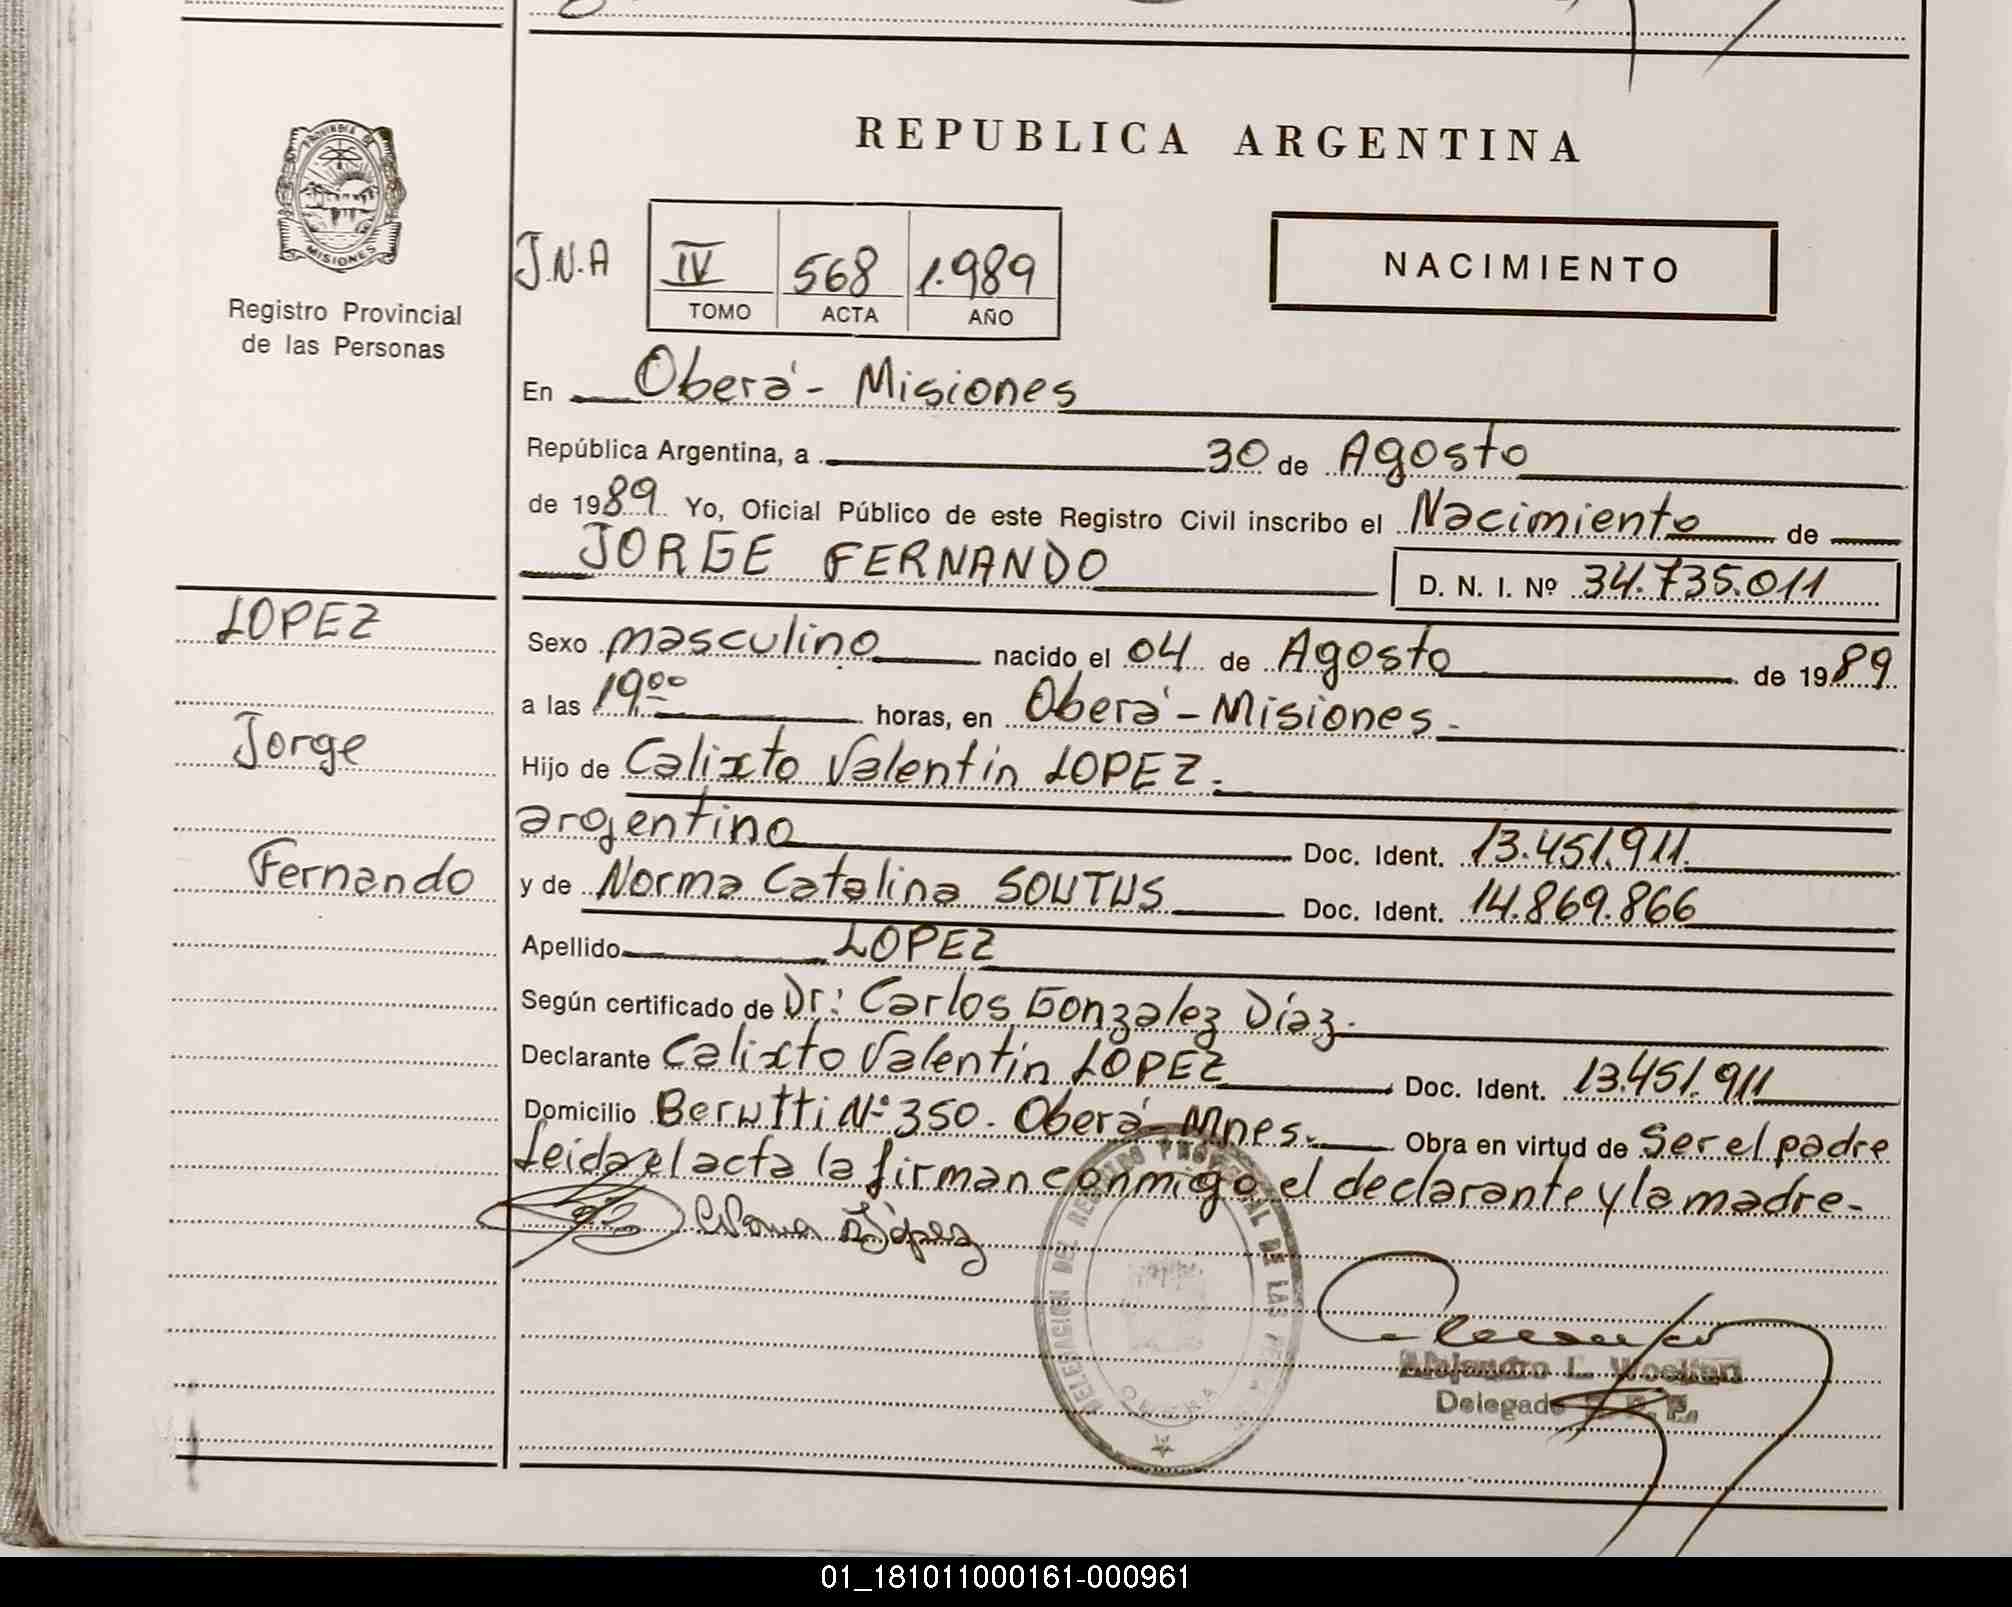 REPUBLICA ARGENTINA
PROVINCIA DE
MISIONES
Registro Provincial
de las Personas
J.N.A
IV 568 1.989
TOMO ACTA AÑO
NACIMIENTO
En Oberá - Misiones
República Argentina, a 30 de Agosto
de 1989 Yo, Oficial Público de este Registro Civil inscribo el Nacimiento de
JORGE FERNANDO D. N. I. Nº 34.735.011
LOPEZ
Jorge
Fernando
Sexo masculino nacido el 04 de Agosto de 1989
a las 19:00 horas, en Oberá - Misiones.
Hijo de Calixto Valentin LOPEZ.
argentino Doc. Ident. 13.451.911.
y de Norma Catalina SOUTUS Doc. Ident. 14.869.866
Apellido LOPEZ
Según certificado de Dr: Carlos Gonzalez Díaz.
Declarante Calixto Valentin LOPEZ Doc. Ident. 13.451.911
Domicilio Berutti Nº 350. Oberá - Mnes. Obra en virtud de Ser el padre
Leida el acta la firman conmigo el declarante y la madre-
López
DELEGACION DEL REGISTRO PROVINCIAL DE LAS
Alejandro L.
Delegado R. P. P.
01_181011000161-000961